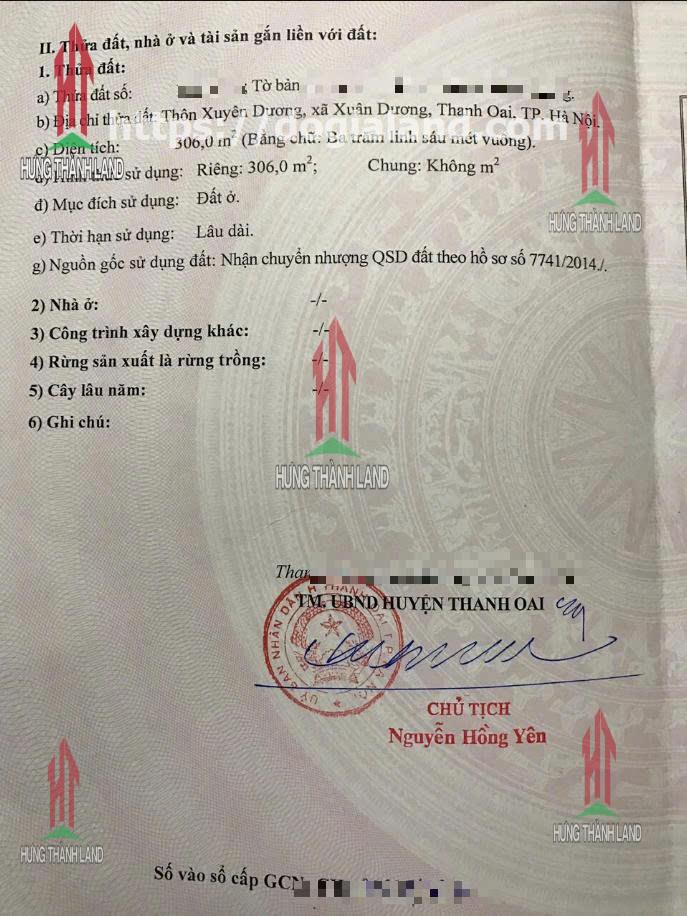 II. Thửa đất, nhà ở và tài sản gắn liền với đất:
1. Thửa đất:
a) Thửa đất số: Tờ bản
b) Địa chỉ thửa đất: Thôn Xuyên Dương, xã Xuân Dương, Thanh Oai, TP. Hà Nội.
c) Diện tích: 306,0 m² (Bằng chữ: Ba trăm linh sáu mét vuông).
sử dụng: Riêng: 306,0 m²; Chung: Không m²
đ) Mục đích sử dụng: Đất ở.
e) Thời hạn sử dụng: Lâu dài.
g) Nguồn gốc sử dụng đất: Nhận chuyển nhượng QSD đất theo hồ sơ số 7741/2014./.
2) Nhà ở: -/-
3) Công trình xây dựng khác: -/-
4) Rừng sản xuất là rừng trồng: -/-
5) Cây lâu năm: -/-
6) Ghi chú:
HƯNG THÀNH LAND
HƯNG THÀNH LAND
HƯNG THÀNH LAND
TM. UBND HUYỆN THANH OAI
CHỦ TỊCH
Nguyễn Hồng Yên
HƯNG THÀNH LAND
HƯNG THÀNH LAND
Số vào sổ cấp GCN